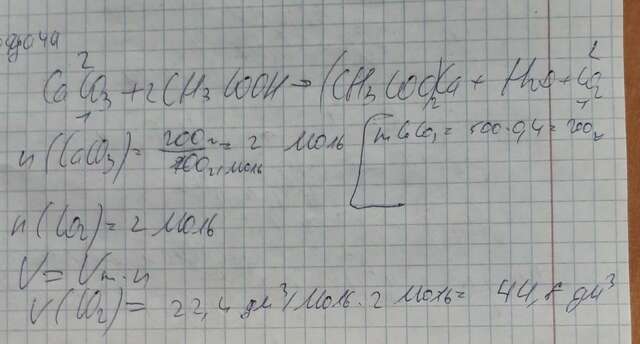 2 2
CaCO3 + 2CH3COOH = (CH3COO)2Ca + H2O + CO2
1 1
n(CaCO3) = 200г / 100г/моль = 2 моль
mCaCO3 = 500·0,4 = 200г
n(CO2) = 2 моль
V = Vm·n
V(CO2) = 22,4 дм³/моль·2 моль = 44,8 дм³